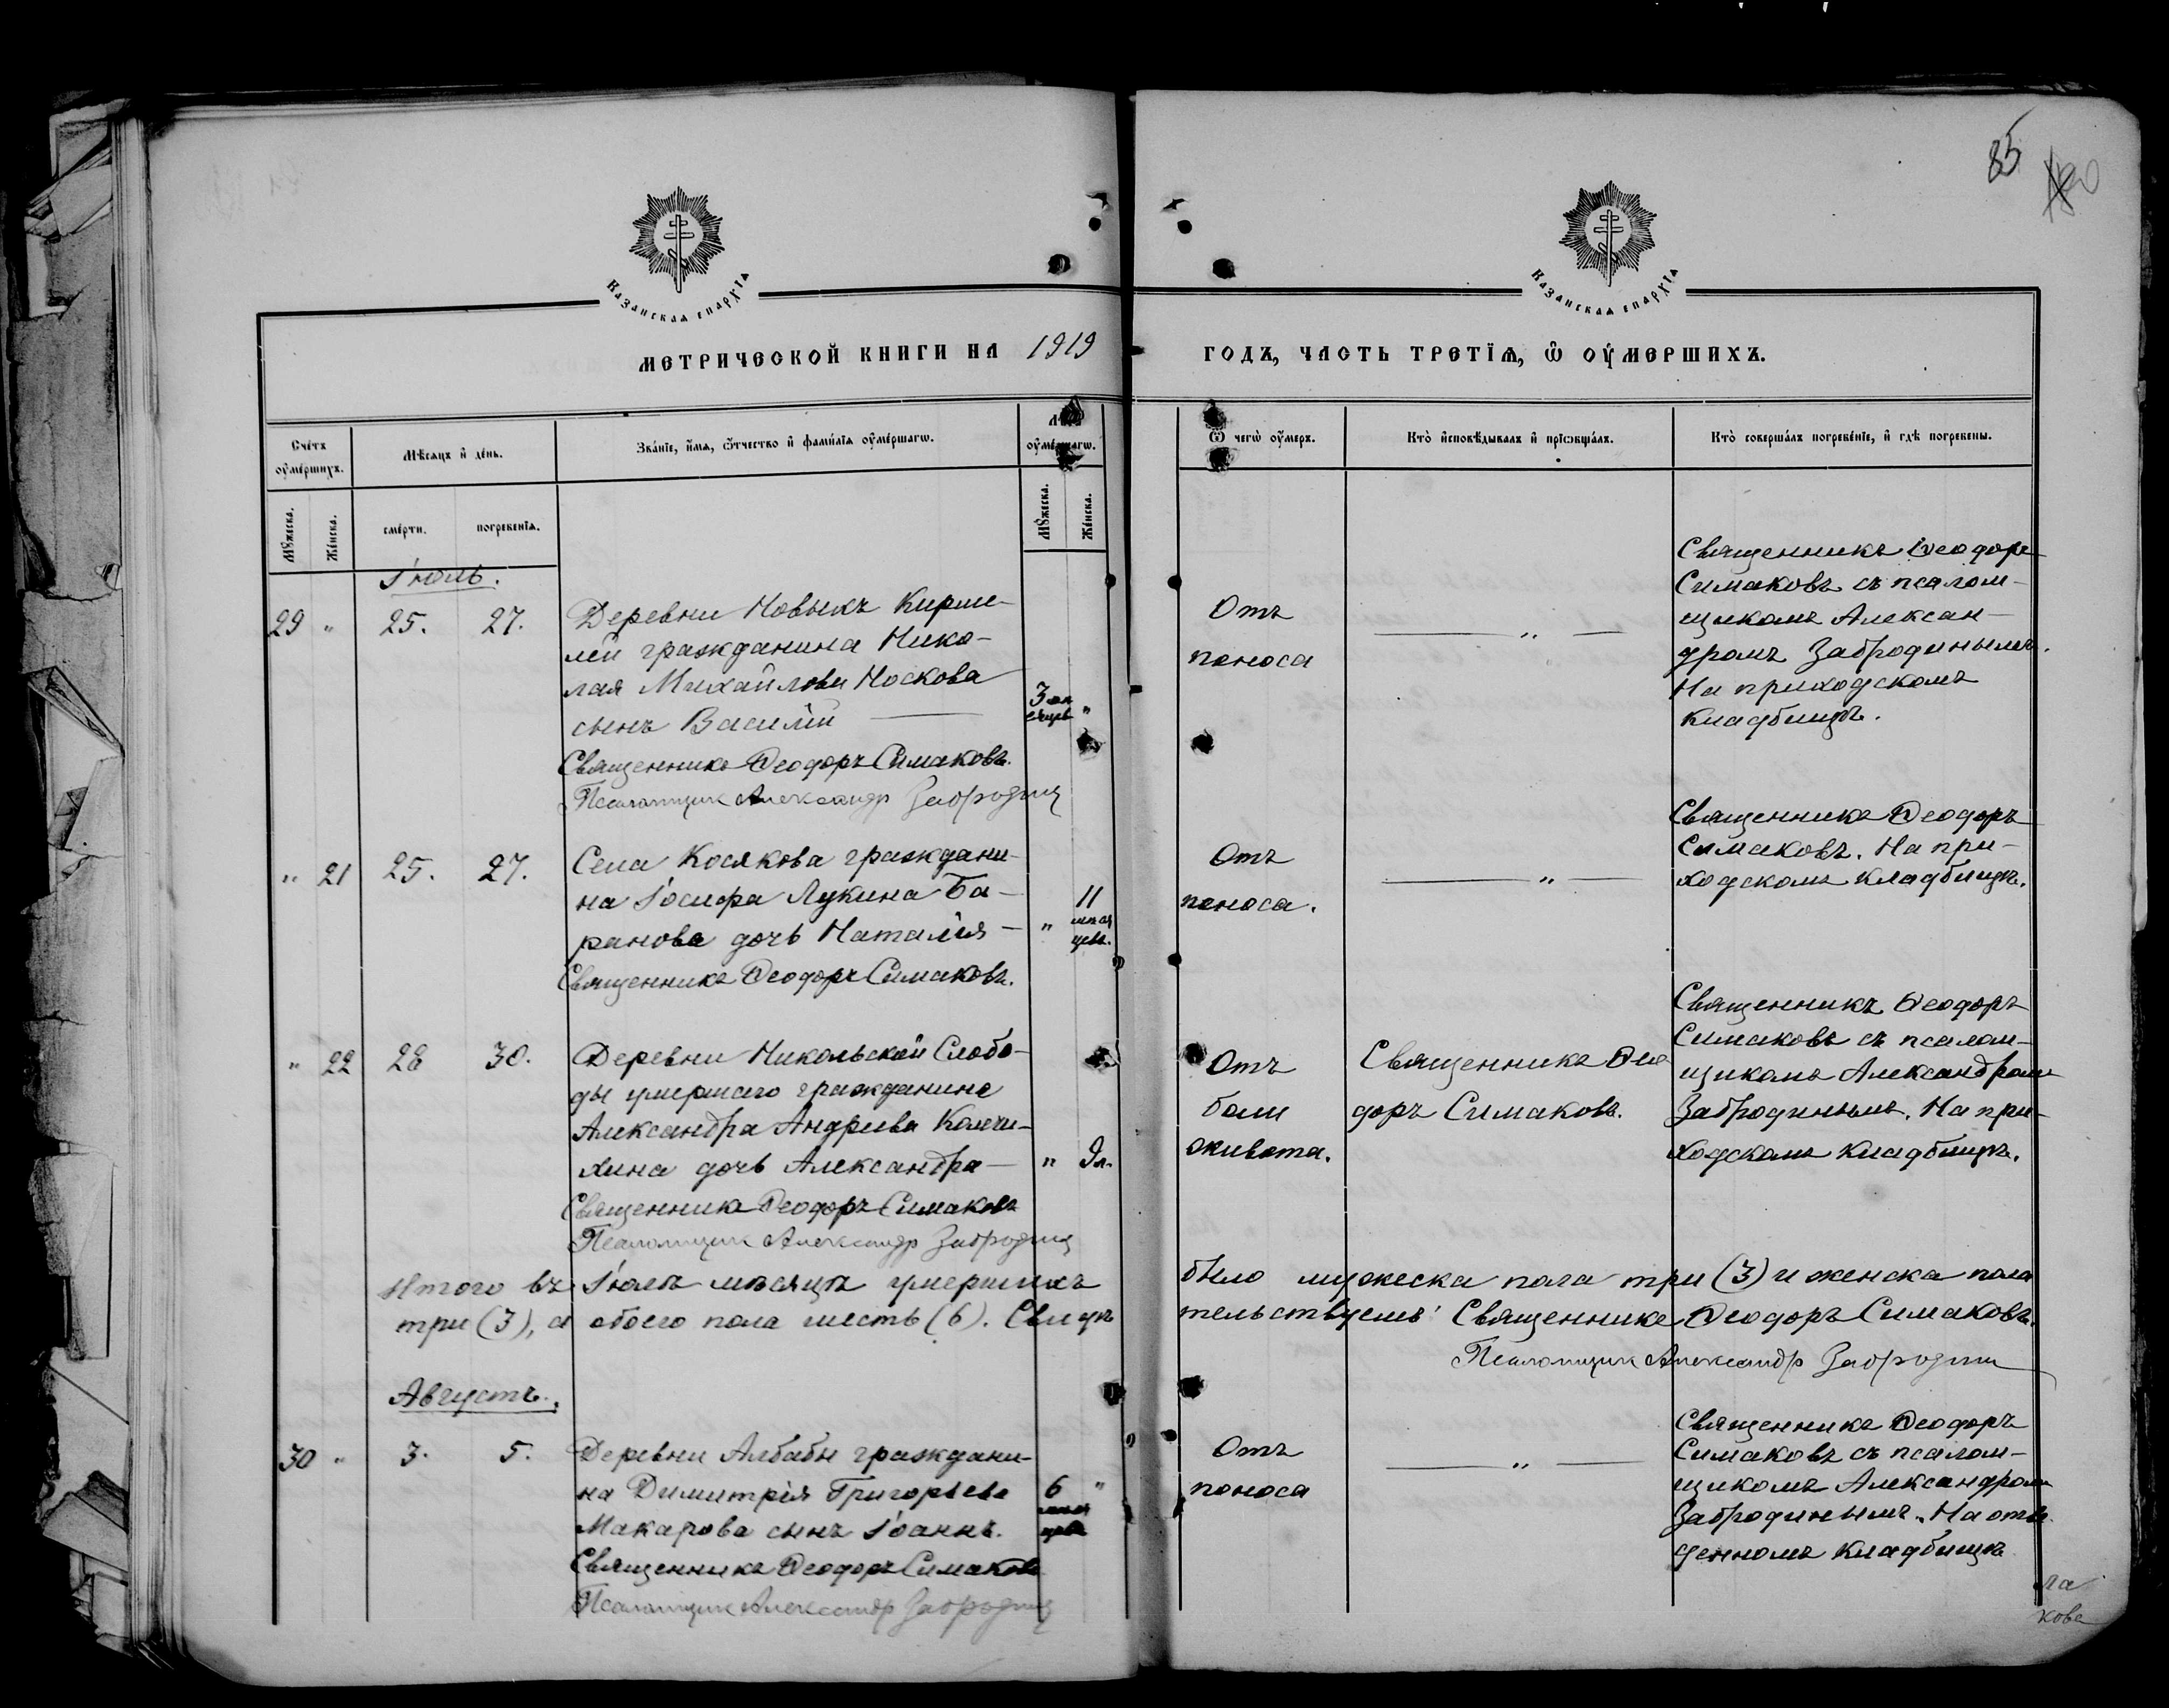 85
Казанская епархїѧ
Казанская епархїѧ
МЕТРИЧЕСКОЙ КНИГИ НА 1919
ГОДЪ, ЧАСТЬ ТРЕТЇѦ, Ѿ ОУМЕРШИХЪ.
Счётъ оумершихъ.
Мѣсѧцъ и день.
Званїе, имѧ, отчество и фамилїѧ оумершагѡ.
оумершагѡ.
Ѿ чегѡ оумеръ.
Кто исповѣдывалъ и прїѡбщалъ.
Кто совершалъ погребенїе, и гдѣ погребены.
Мꙋжеска.
Женска.
смерти.
погребенїѧ.
Мꙋжеска.
Женска.
Іюль.
29 " 25. 27.
Деревни Новыхъ Кирме-
лей гражданина Нико-
лая Михайлова Носкова
сынъ Василій
3 мѣ
сяцев "
Священникъ Ѳеодоръ Симаковъ.
Псаломщик Александр Забродин
Отъ
поноса
"
Священникъ Ѳеодоръ
Симаковъ съ псалом-
щикомъ Алексан-
дромъ Забродинымъ.
На приходскомъ
кладбищѣ.
" 21 25. 27.
Села Косякова граждани-
на Іосифа Лукина Ба-
ранова дочь Наталія
" 11
мѣся
цевъ.
Священникъ Ѳеодоръ Симаковъ.
Отъ
поноса.
"
Священникъ Ѳеодоръ
Симаковъ. На при-
ходскомъ кладбищѣ.
" 22 28 30.
Деревни Никольской Слобо-
ды умершаго гражданина
Александра Андреева
дочь Александра
" 9 л.
Священникъ Ѳеодоръ Симаковъ
Псаломщик Александр Забродин
Отъ
боли
живота.
Священникъ Ѳео
доръ Симаковъ.
Священникъ Ѳеодоръ
Симаковъ съ псалом-
щикомъ Александромъ
Забродинымъ. На при-
ходскомъ кладбищѣ.
Итого въ Іюлѣ мѣсяцѣ умершихъ было мужеска пола три (3) и женска пола
три (3), а обоего пола шесть (6). Свидѣтельствуемъ: Священникъ Ѳеодоръ Симаковъ.
Псаломщик Александр Забродин
Августъ.
30 " 3. 5.
Деревни Албабы граждани-
на Димитрія Григорьева
Макарова сынъ Іоаннъ.
6 "
мѣся
цевъ
Священникъ Ѳеодоръ Симаковъ
Псаломщик Александр Забродин
Отъ
поноса
"
Священникъ Ѳеодоръ
Симаковъ съ псалом-
щикомъ Александромъ
Забродинымъ. На отве
денномъ кладбищѣ